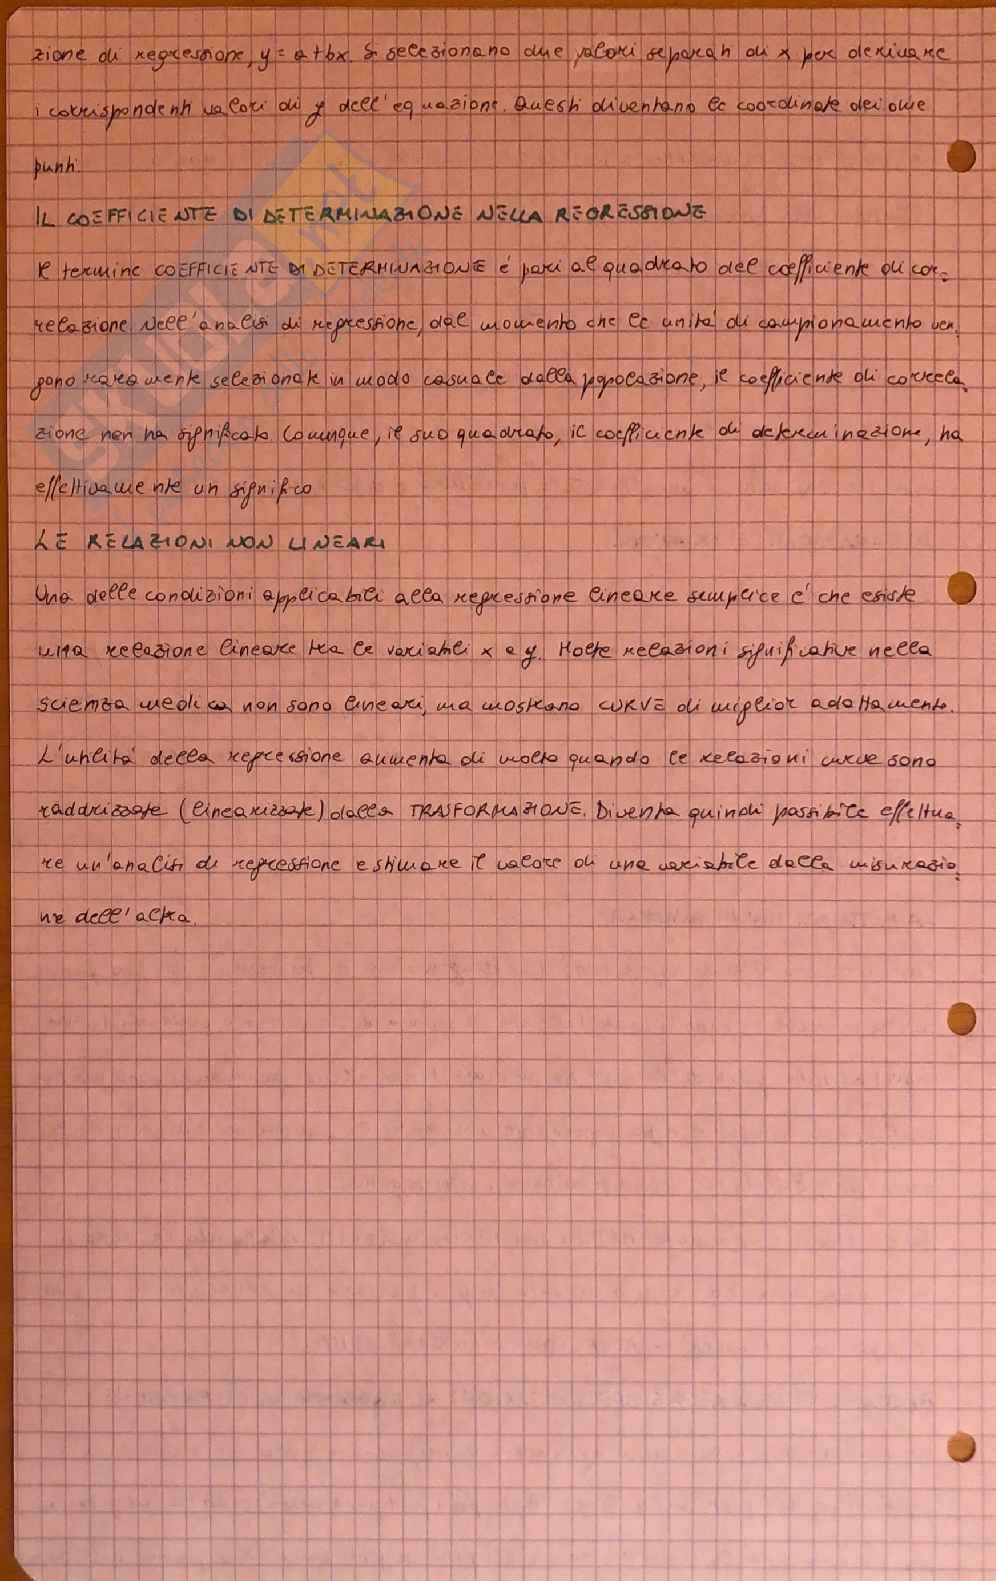 zione di regressione, y = a+bx. Si selezionano due valori separati di x per derivare
i corrispondenti valori di y dell'equazione. Questi diventano le coordinate dei due
punti.
IL COEFFICIENTE DI DETERMINAZIONE NELLA REGRESSIONE
Il termine COEFFICIENTE DI DETERMINAZIONE é pari al quadrato del coefficiente di cor-
relazione. Nell'analisi di regressione, dal momento che le unità di campionamento ven-
gono raramente selezionate in modo casuale dalla popolazione, il coefficiente di correla-
zione non ha significato. Comunque, il suo quadrato, il coefficiente di determinazione, ha
effettivamente un significo
LE RELAZIONI NON LINEARI
Una delle condizioni applicabili alla regressione lineare semplice é che esiste
una relazione lineare tra le variabili x e y. Molte relazioni significative nella
scienza medica non sono lineari, ma mostrano CURVE di miglior adattamento.
L'utilità della regressione aumenta di molto quando le relazioni curve sono
raddrizzate (linearizzate) dalla TRASFORMAZIONE. Diventa quindi possibile effettua-
re un'analisi di regressione e stimare il valore di una variabile dalla misurazio-
ne dell'altra.
skuola.net